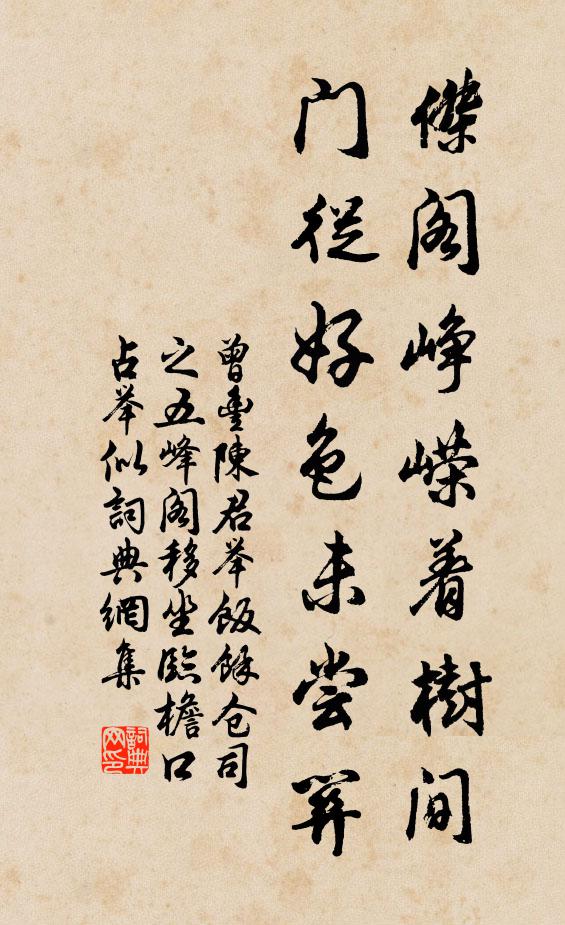 傑阁峥嵘着樹间
门從好色未尝關
曾豊陳君举飯餘仓司
之五峰阁移坐臨檐口
占举似詞典網集
詞典网印